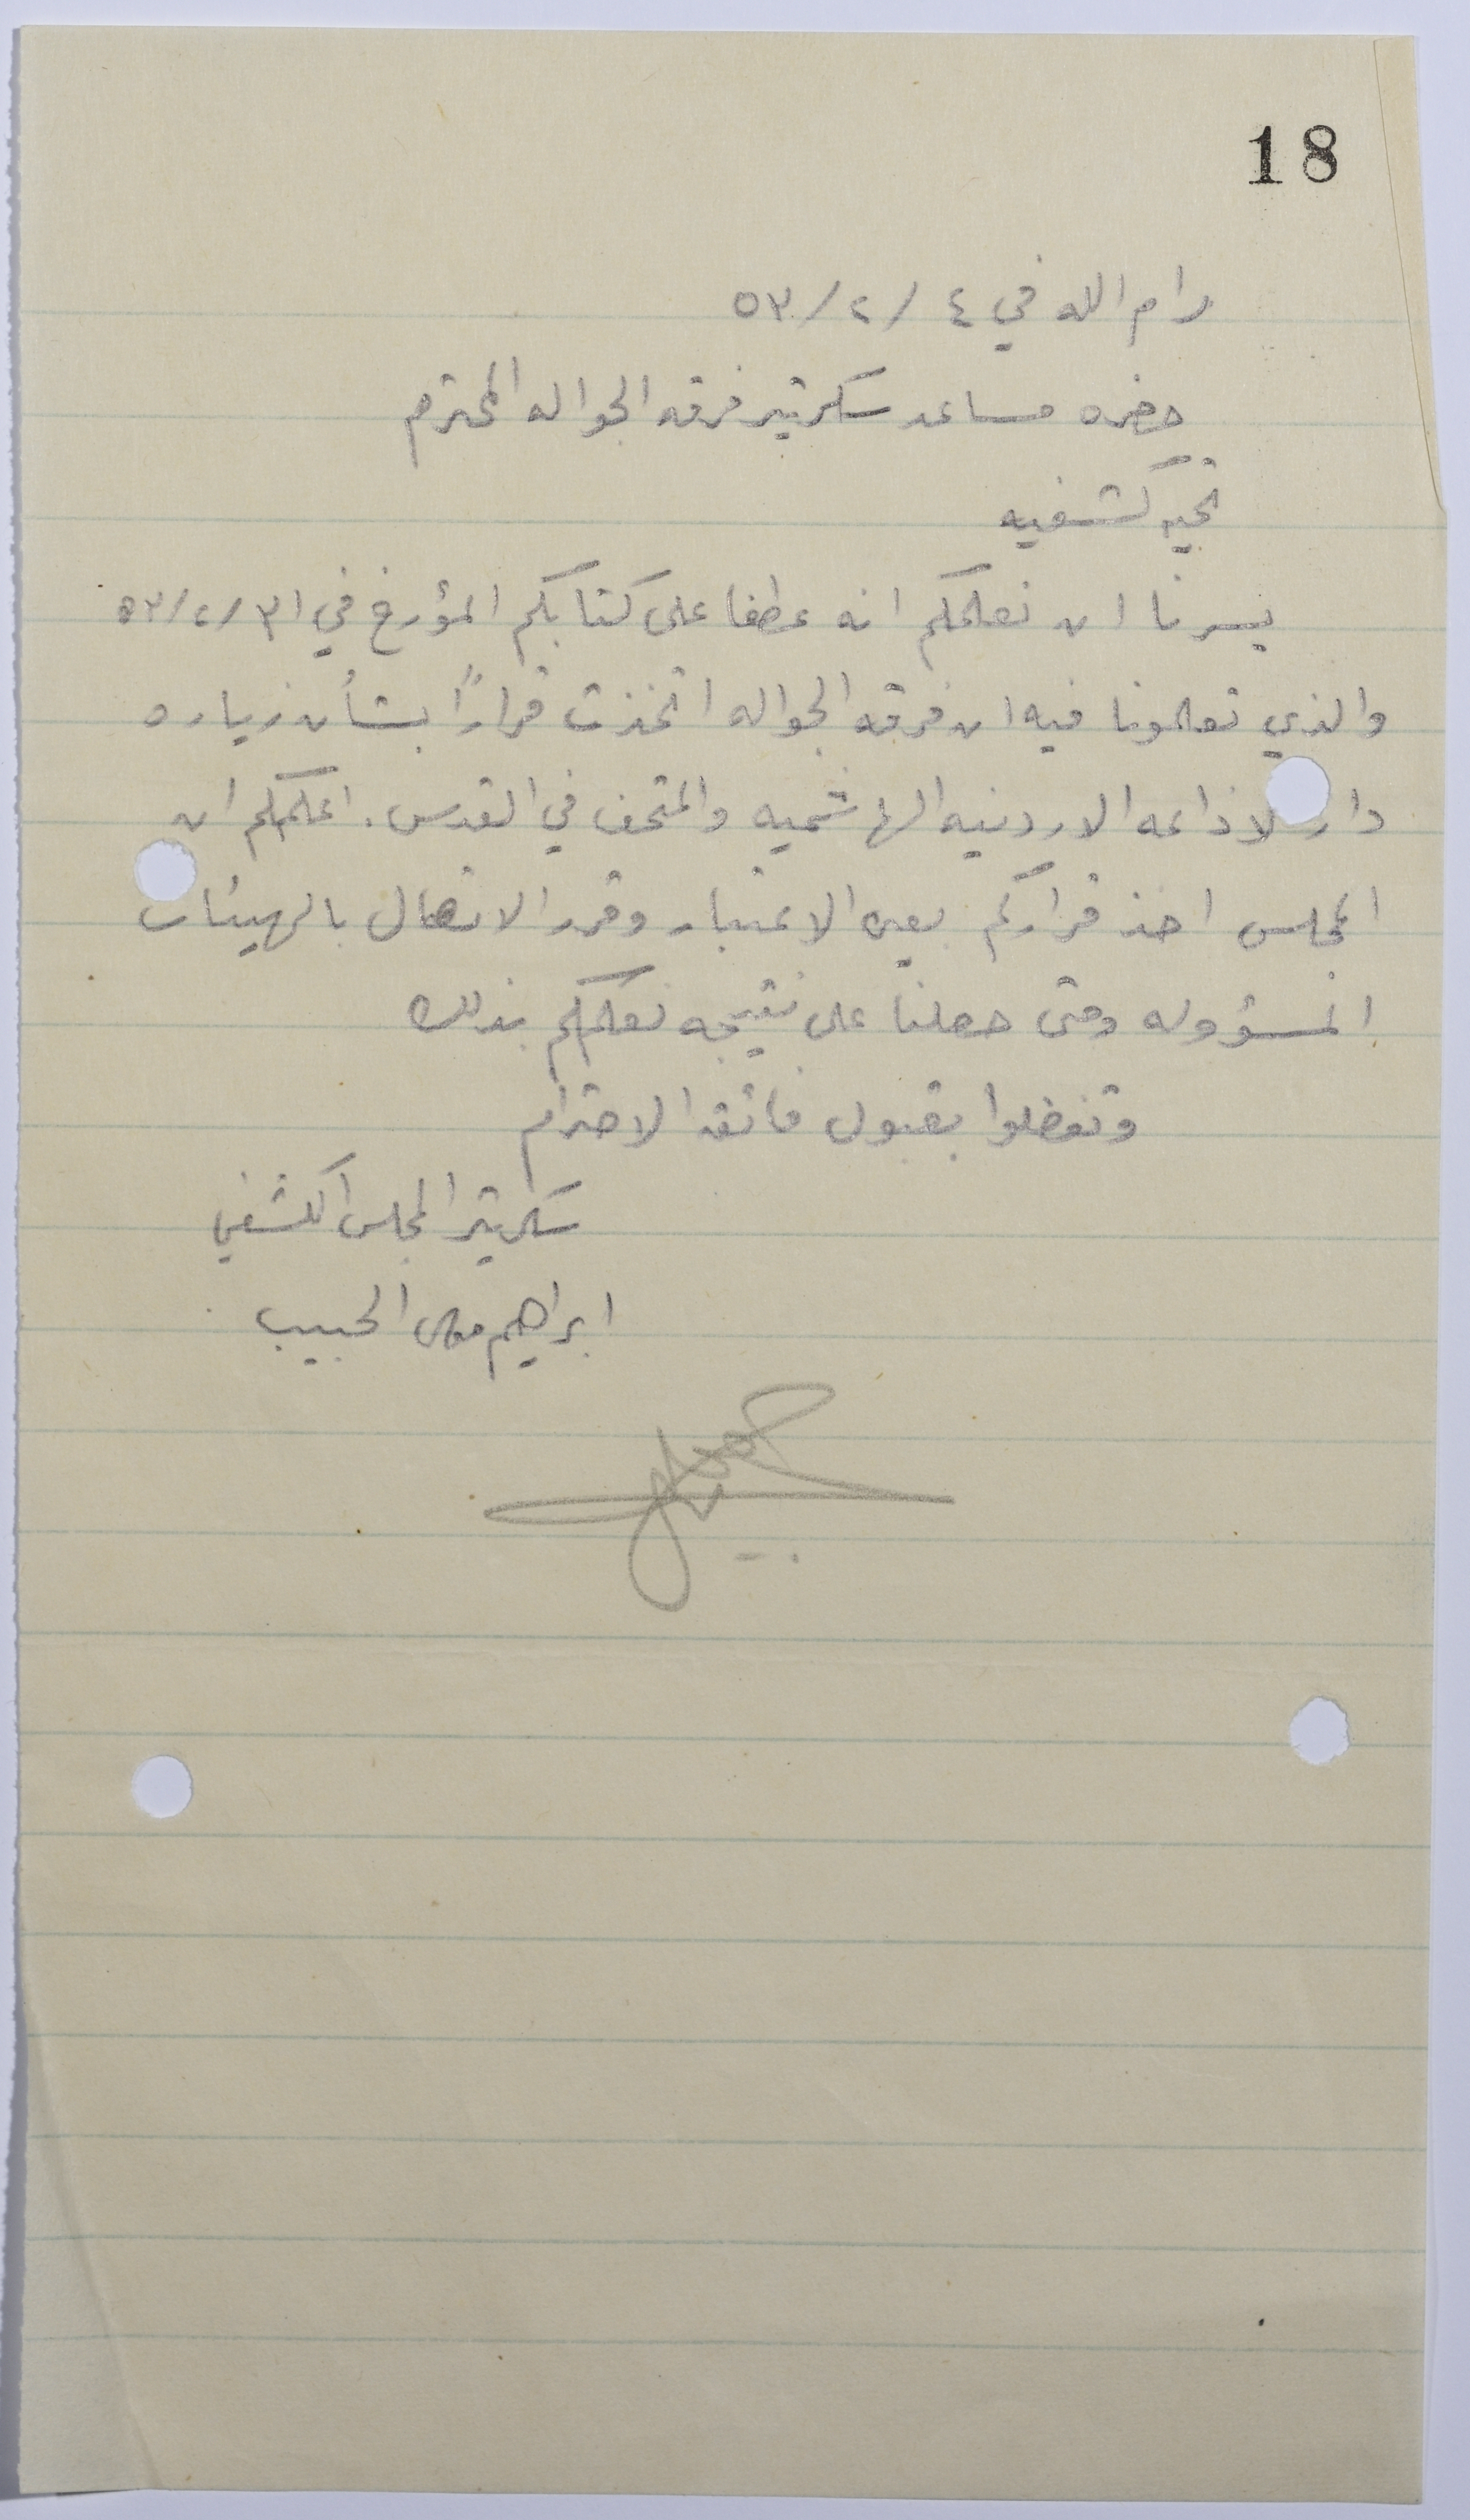 18
رام الله في ٤ / ٢ / ٥٣
حضره مساعد سكرتير فرقه الجواله المحترم
تحيه كشفيه
يسرنا ان نعلمكم انه عطفا على كتابكم المؤرخ في ٣١/٢/٥٣
والذي تعلمونا فيه ان فرقه الجواله اتخذت قرارًا بشأن زياره
دار الاذاعه الاردنيه الهاشميه والمتحف في القدس . اعلمكم ان
المجلس اخذ قراركم بعين الاعتبار وقرر الاتصال بالهيئات
المسؤوله ومتى حصلنا على نتيجه نعلمكم بذلك
وتفضلوا بقبول فائقه الاحترام
سكرتير المجلس الكشفي
ابراهيم الحبيب